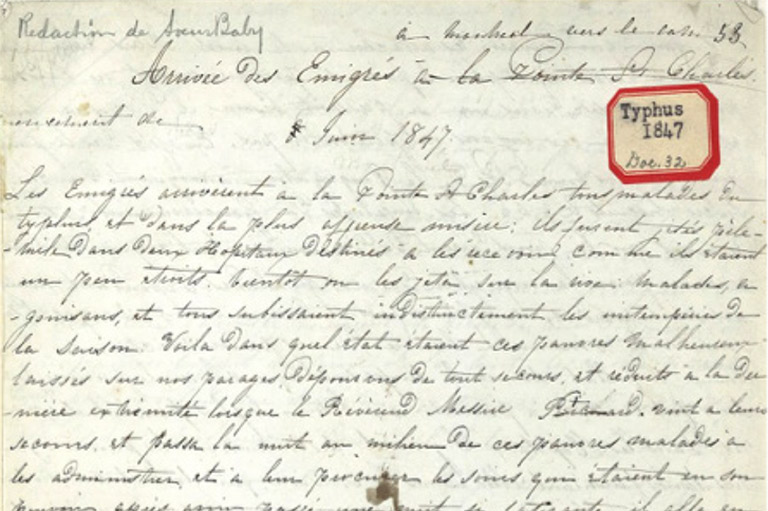 Redaction de Soeur Baby
à Montreal vers le 53
Arrivée des Emigrés à la Pointe St Charles.
Typhus
1847
Doc. 32
de
Juin 1847.
Les Emigrés arrivèrent a la Pointe St Charles tous malades du
typhus, et dans la plus affreuse misere; ils furent jetés pêle-
-mêle dans deux Hopitaux destinés a les recevoir, comme ils étaient
un peu étroits bientôt on les jeta sur la rive: malades, a-
-gonisans, et tous subissaient indistinctement les intempéries de
la Saison. Voila dans quel état étaient ces pauvres malheureux
laissés sur nos parages dépourvus de tout secours, et réduits a la der-
-nière extremité lorsque le Révérend Messire Richard. vint a leurs
secours, et passa la nuit au milieu de ces pauvres malades a
les administrer, et a leur procurer les soins qui étaient en son
pouvoir après avoir passé une nuit si fatigante il alla en